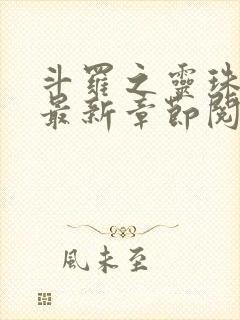 斗羅之靈珠
最新章節閱
風未至